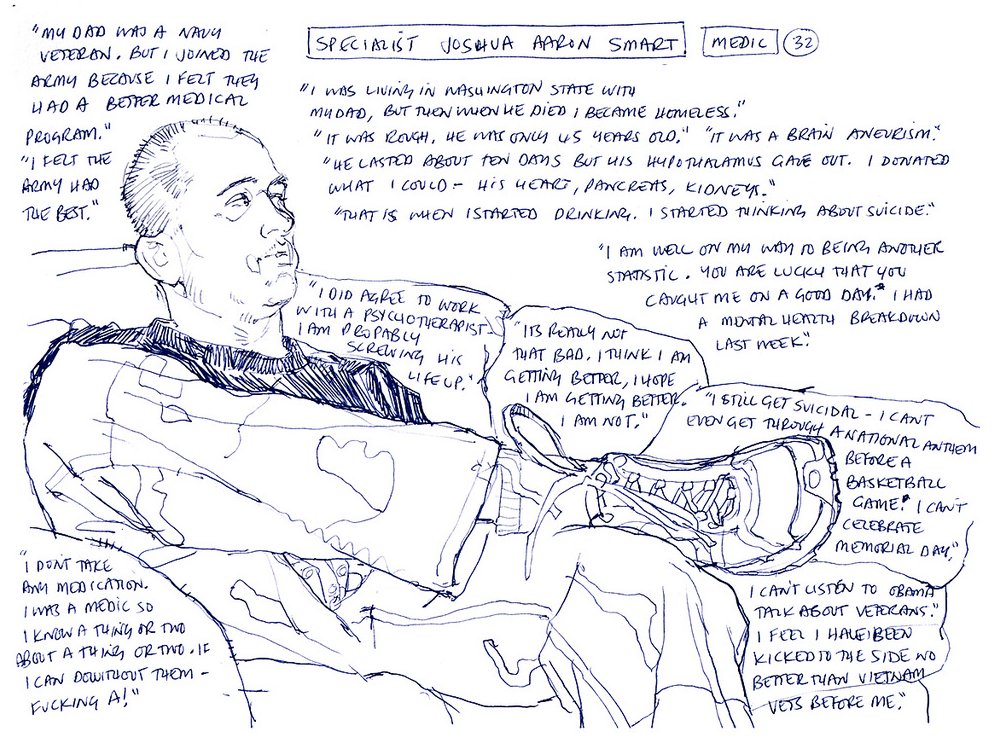 "MY DAD WAS A NAVY
VETERAN. BUT I JOINED THE
ARMY BECAUSE I FELT THEY
HAD A BETTER MEDICAL
PROGRAM."
"I FELT THE
ARMY HAD
THE BEST."
SPECIALIST JOSHUA AARON SMART MEDIC 32
"I WAS LIVING IN WASHINGTON STATE WITH
MY DAD, BUT THEN WHEN HE DIED I BECAME HOMELESS."
"IT WAS ROUGH. HE WAS ONLY 45 YEARS OLD." "IT WAS A BRAIN ANEURISM."
"HE LASTED ABOUT TEN DAYS BUT HIS HYPOTHALAMUS GAVE OUT. I DONATED
WHAT I COULD - HIS HEART, PANCREAS, KIDNEYS."
"THAT IS WHEN I STARTED DRINKING. I STARTED THINKING ABOUT SUICIDE."
"I AM WELL ON MY WAY TO BEING ANOTHER
STATISTIC. YOU ARE LUCKY THAT YOU
CAUGHT ME ON A GOOD DAY." I HAD
A MENTAL HEALTH BREAKDOWN
LAST WEEK."
"I DID AGREE TO WORK
WITH A PSYCHOTHERAPIST.
I AM PROPABLY
SCREWING HIS
LIFE UP."
"ITS REALLY NOT
THAT BAD. I THINK I AM
GETTING BETTER, I HOPE
I AM GETTING BETTER.
I AM NOT."
"I STILL GET SUICIDAL - I CANT
EVEN GET THROUGH A NATIONAL ANTHEM
BEFORE A
BASKETBALL
GAME." I CAN'T
CELEBRATE
MEMORIAL DAY."
I CAN'T LISTEN TO OBAMA
TALK ABOUT VETERANS."
I FEEL I HAVE BEEN
KICKED TO THE SIDE NO
BETTER THAN VIETNAM
VETS BEFORE ME."
"I DON'T TAKE
ANY MEDICATION.
I WAS A MEDIC SO
I KNOW A THING OR TWO
ABOUT A THING OR TWO. IF
I CAN DO WITHOUT THEM -
FUCKING A!"